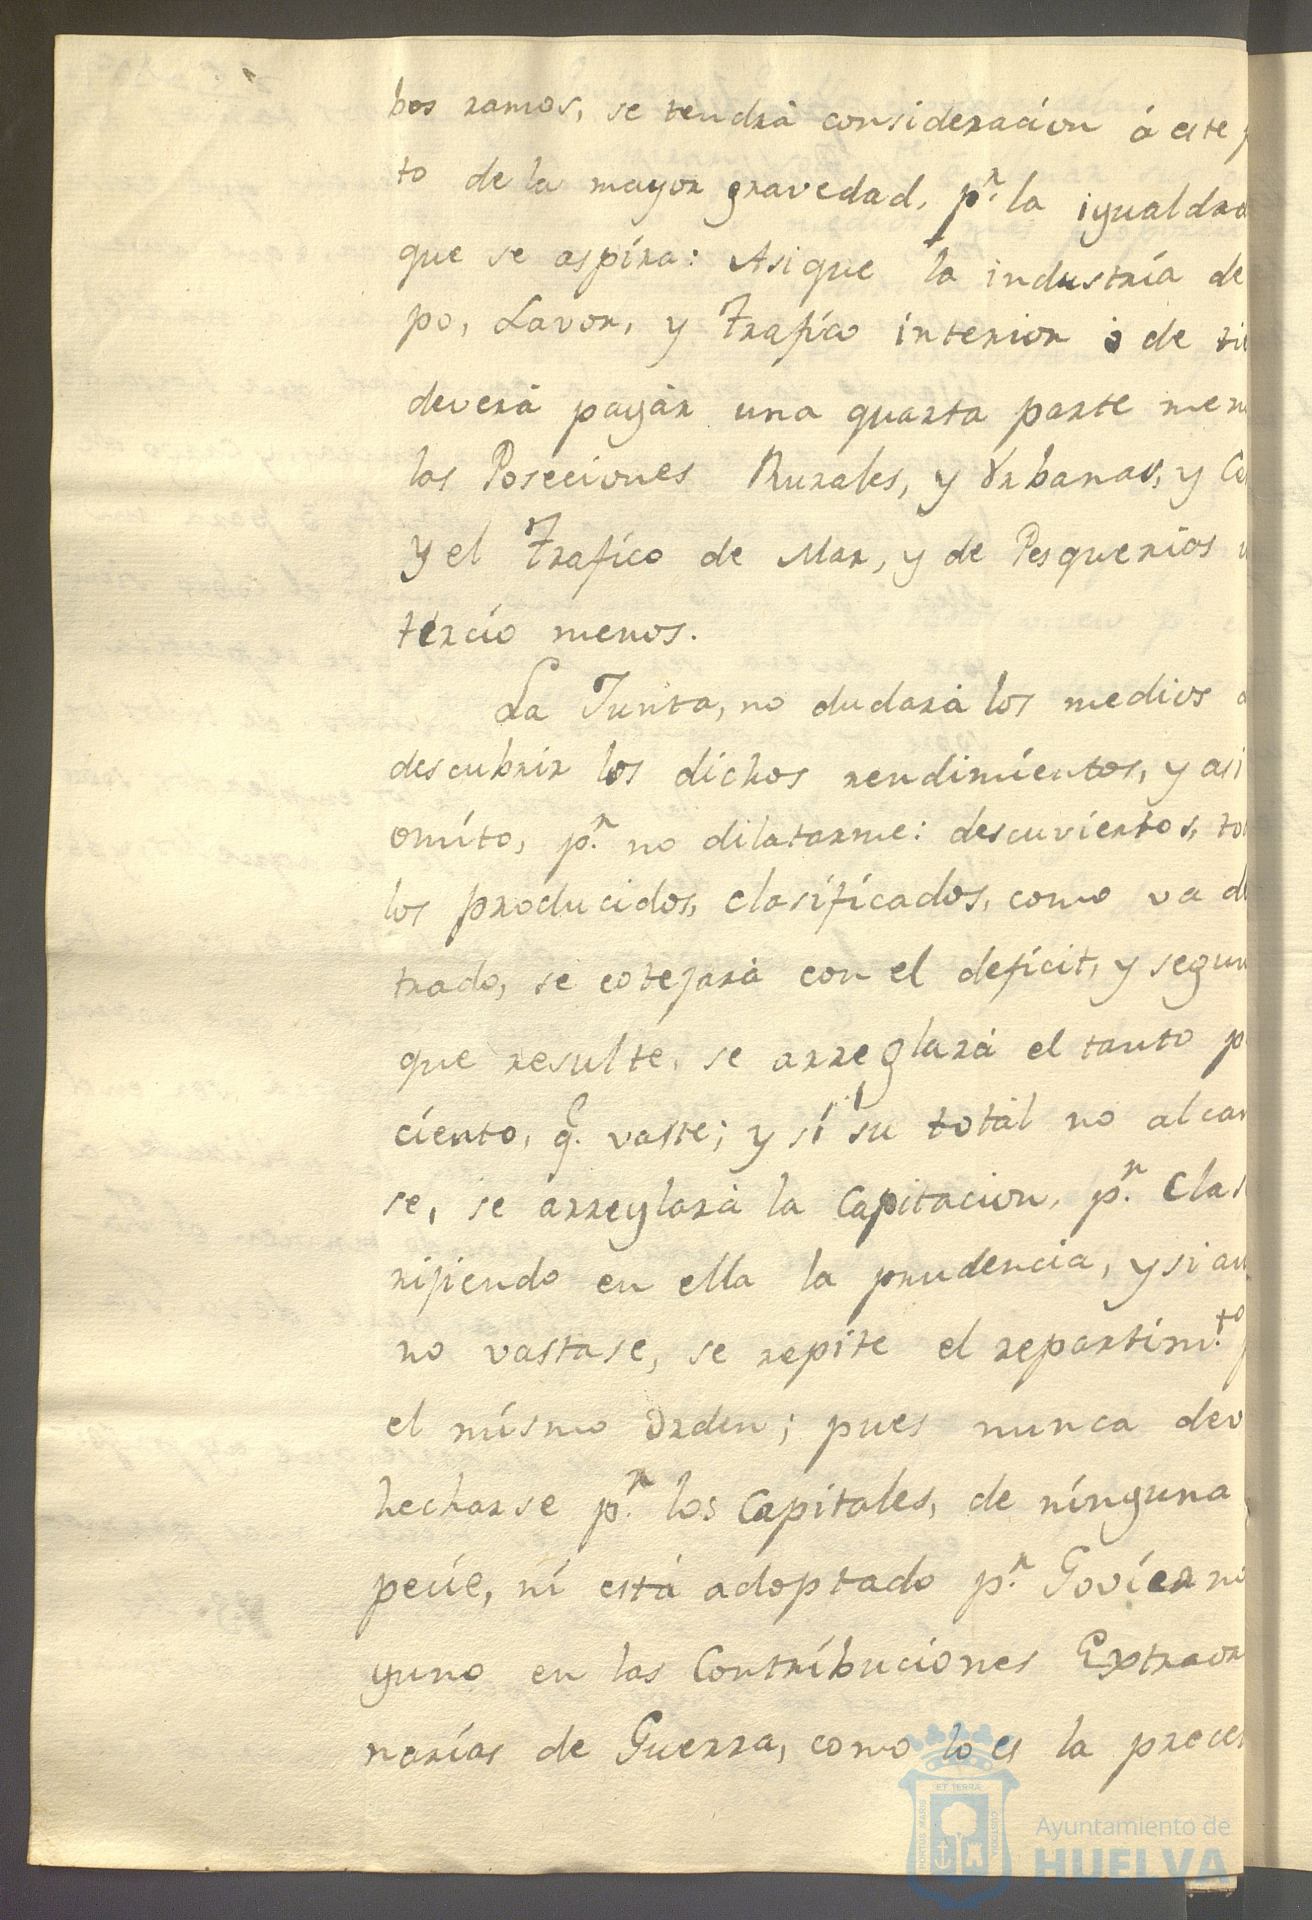 bos ramos, se tendrà consideracion à este p
to de la mayor gravedad, p.r la igualdad
que se aspira: Asi que la industria de
po, Lavor, y Trafico interior ò de tie
deverà pagàr una quarta parte men
las Poseciones Rurales, y Urbanas, y Co
y el Trafico de Mar, y de Pesquerias u
tercio menos.
La Junta, no dudarà los medios d
descubrir los dichos rendimientos, y asi
omito, p.r no dilatarme: descuviertos, to
los producidos, clasificados, como va de
trado, se cotejarà con el deficit, y segun
que resulte, se arreglarà el tanto p
ciento, q.e vaste; y si su total no alcan
se, se arreglarà la Capitacion, p.r Clas
rijiendo en ella la prudencia, y si au
no vastase, se repite el repartim.to p
el mismo Orden; pues nunca dev
hecharse p.r los Capitales, de ninguna
pecie, ni està adoptado p.r Govierno
guno en las Contribuciones Extraor
narias de Guerra, como lo es la presen
ET TERRÆ
PORTUS MARIS
CUSTODIA
Ayuntamiento de
HUELVA